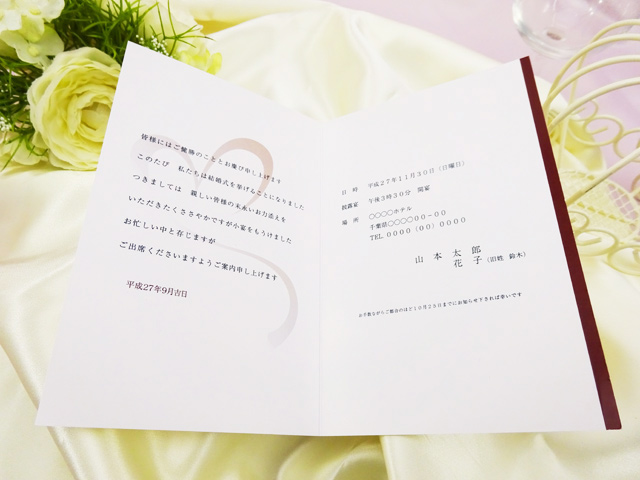 皆様にはご健勝のこととお慶び申し上げます
このたび 私たちは結婚式を挙げることになりました
つきましては 親しい皆様の末永いお力添えを
いただきたくささやかですが小宴をもうけました
お忙しい中と存じますが
ご出席くださいますようご案内申し上げます
平成27年9月吉日
日 時 平成27年11月30日(日曜日)
披露宴 午後3時30分 開宴
場 所 ○○○○ホテル
千葉県○○○○00-00
TEL 0000(00)0000
山 本 太 郎
花 子(旧姓 鈴木)
お手数ながらご都合のほど10月25日までにお知らせ下されば幸いです